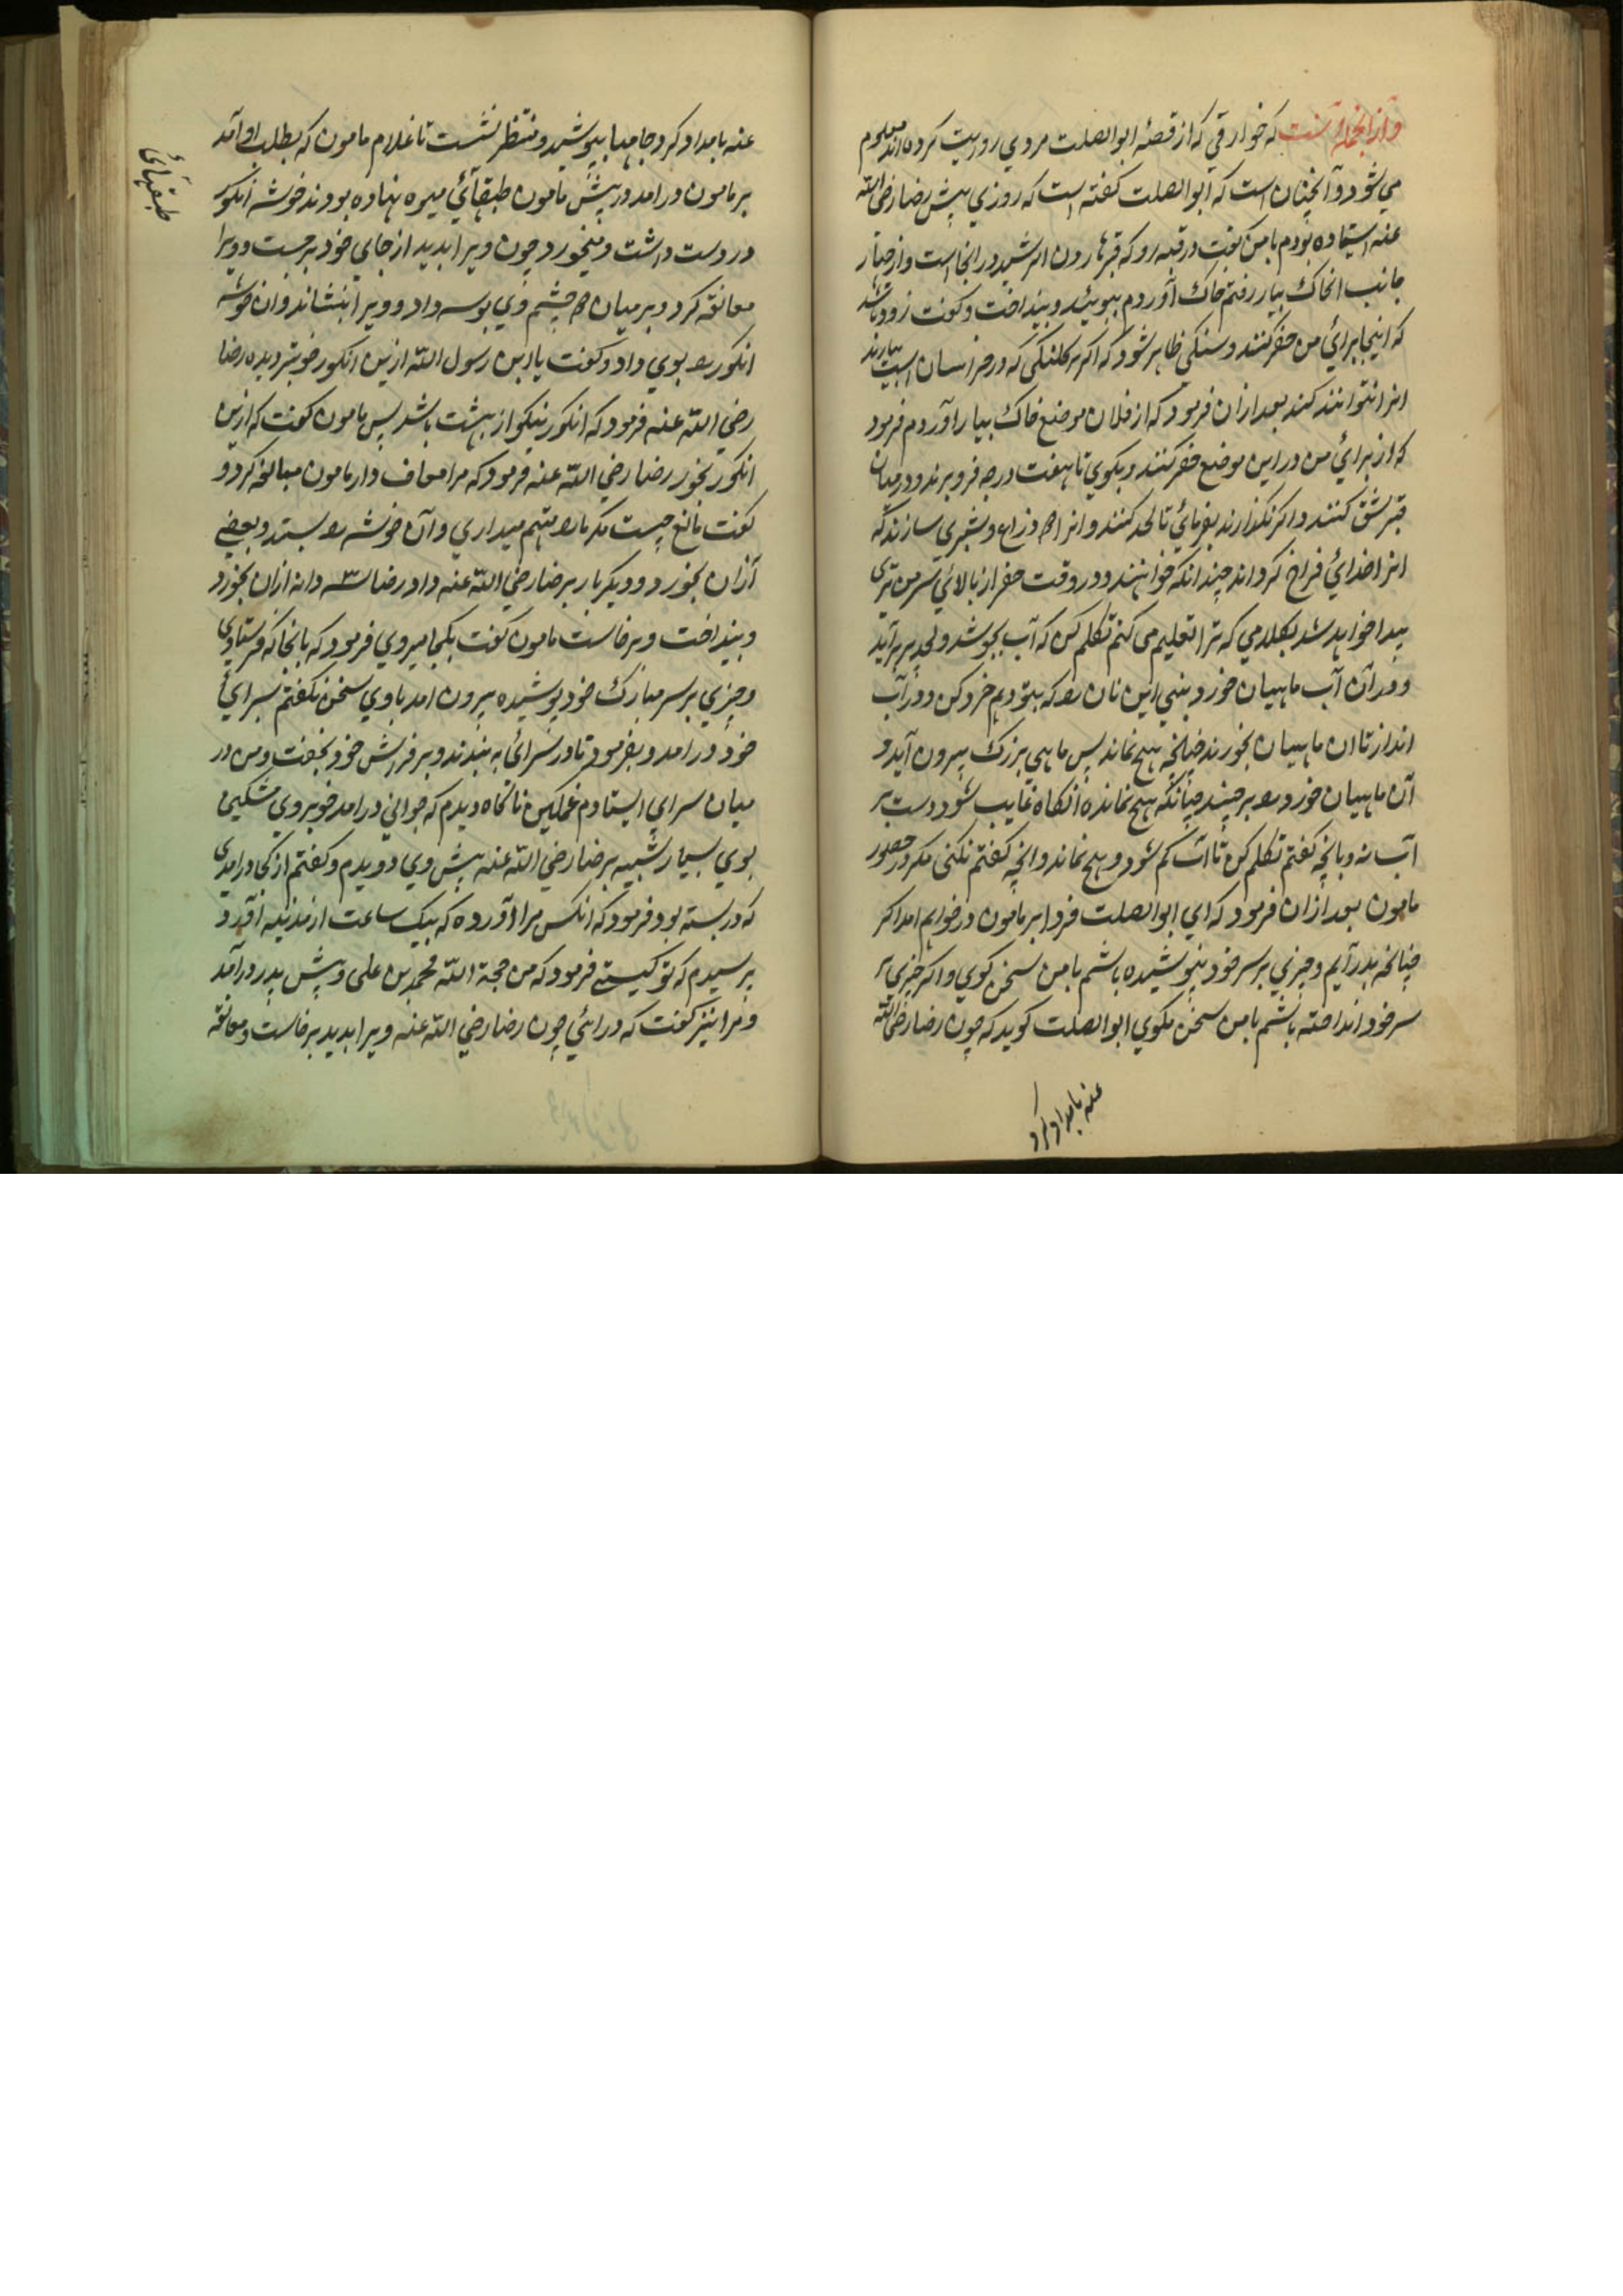 و از انجمله آنست که خوارقی که از قصهٔ ابو الصلت مروی روایت کرده اند معلوم
می شود و آنچنان است که ابو الصلت گفته است که روزی پیش رضا رضی الله
عنه استاده بودم با من گفت در قبه رو که قبر هارون الرشید در انجا است و از چهار
جانب آن خاک بیار رفتم خاک آوردم ببوئید و بینداخت و گفت زود باشد
که اینجا برای من حفر کنند و سنگی ظاهر شود که اگر هر کلنگی که در خراسان است بیارند
انرا نتوانند کند بعد ازان فرمود که از فلان موضع خاک بیار آوردم فرمود
که از برای من در این موضع حفر کنند و بگوی تا هفت درجه فرو برند و در میان
قبر شق کنند و اگر نگذارند بفرمائی تا لحد کنند و انرا ۲ ذراع و شبری سازند که
انرا خدای فراخ گرداند چندانکه خواهند و در وقت حفر از بالای سر من تری
پیدا خواهد شد بکلامی که ترا تعلیم می کنم تکلم کن که آب بجوشد و لحد پر برآید
و در آن آب ماهیان خورد بینی این نان را که بتو دهم خرد کن و در آب
انداز تا ان ماهیان بخورند چنانچه هیچ نماند پس ماهی بزرگ بیرون آید و
آن ماهیان خورد را برچیند چنانکه هیچ نمانده آنگاه غایب شود دست بر
آب نه و بانچه گفتم تکلم کن تا آب کم شود و هیچ نماند و انچه گفتم نکنی مگر در حضور
مامون بعد ازان فرمود که ای ابو الصلت فردا بر مامون در خواهم امد اگر
چنانچه بدر آیم و چیزی بر سر خود نپوشیده باشم با من سخن گوی و اگر چیزی بر
سر خود انداخته باشم با من سخن مگوی ابو الصلت گوید که چون رضا رضی الله
عنه بامداد کرد
عنه بامداد کرد جامها بپوشید و منتظر نشست تا غلام مامون که بطلب او آمد
بر مامون درامد در پیش مامون طبقهائی میوه نهاده بودند خوشه انگور
در دست داشت و میخورد چون ویرا بدید از جای خود برجست و ویرا
معانقه کرد و بر میان ۲ چشم وی بوسه داد و ویرا بنشاند وان خوشه
انگور را بوی داد و گفت یا ابن رسول الله ازین انگور خوبتر دیده رضا
رضی الله عنه فرمود که انگور نیکو از بهشت باشد پس مامون گفت که ازین
انگور بخور رضا رضی الله عنه فرمود که مرا معاف دار مامون مبالغه کرد و
گفت مانع چیست مگر ما را متهم میداری و آن خوشه را بستد و بعضی
ازان بخورد و دیگر بار برضا رضی الله عنه داد رضا ۳ دانه ازان بخورد
و بینداخت و برخاست مامون گفت بکجا میروی فرمود که بانجا که فرستادی
و چیزی بر سر مبارک خود پوشیده بیرون امد با وی سخن نگفتم بسرای
خود درامد و بفرمود تا در سرای به بندند و بر فرش خود بخفت و من در
میان سرای ایستادم غمگین ناگاه دیدم که جوانی درامد خوبروی مشکین
بوی بسیار شبیه برضا رضی الله عنه پیش وی دویدم و گفتم از کجا درامدی
که در بسته بود فرمود که انکس مرا آورده که بیک ساعت از مدینه آورد
پرسیدم که تو کیستی فرمود که من حجة الله محمد بن علی و پیش پدر درآمد
و مرا نیز گفت که درائی چون رضا رضی الله عنه ویرا بدید برخاست و معانقه
طبقهائی